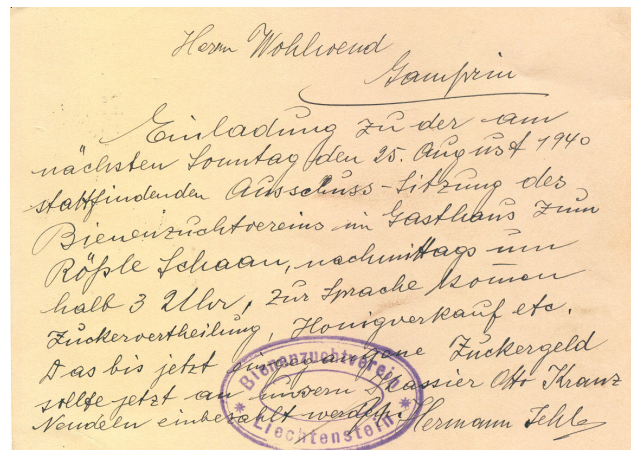 Herrn Wohlwend
Gamprin
Einladung zu der am
nächsten Sonntag den 25. August 1940
stattfindenden Ausschuss-Sitzung des
Bienenzuchtvereins im Gasthaus zum
Rößle Schaan, nachmittags um
halb 3 Uhr, zur Sprache komen
Zuckervertheilung, Honigverkauf etc.
Das bis jetzt eingegangene Zuckergeld
sollte jetzt an unsern Kassier Otto Kranz
Nendeln einbezahlt werden. Hermann
Bienenzuchtverein
* Liechtenstein *